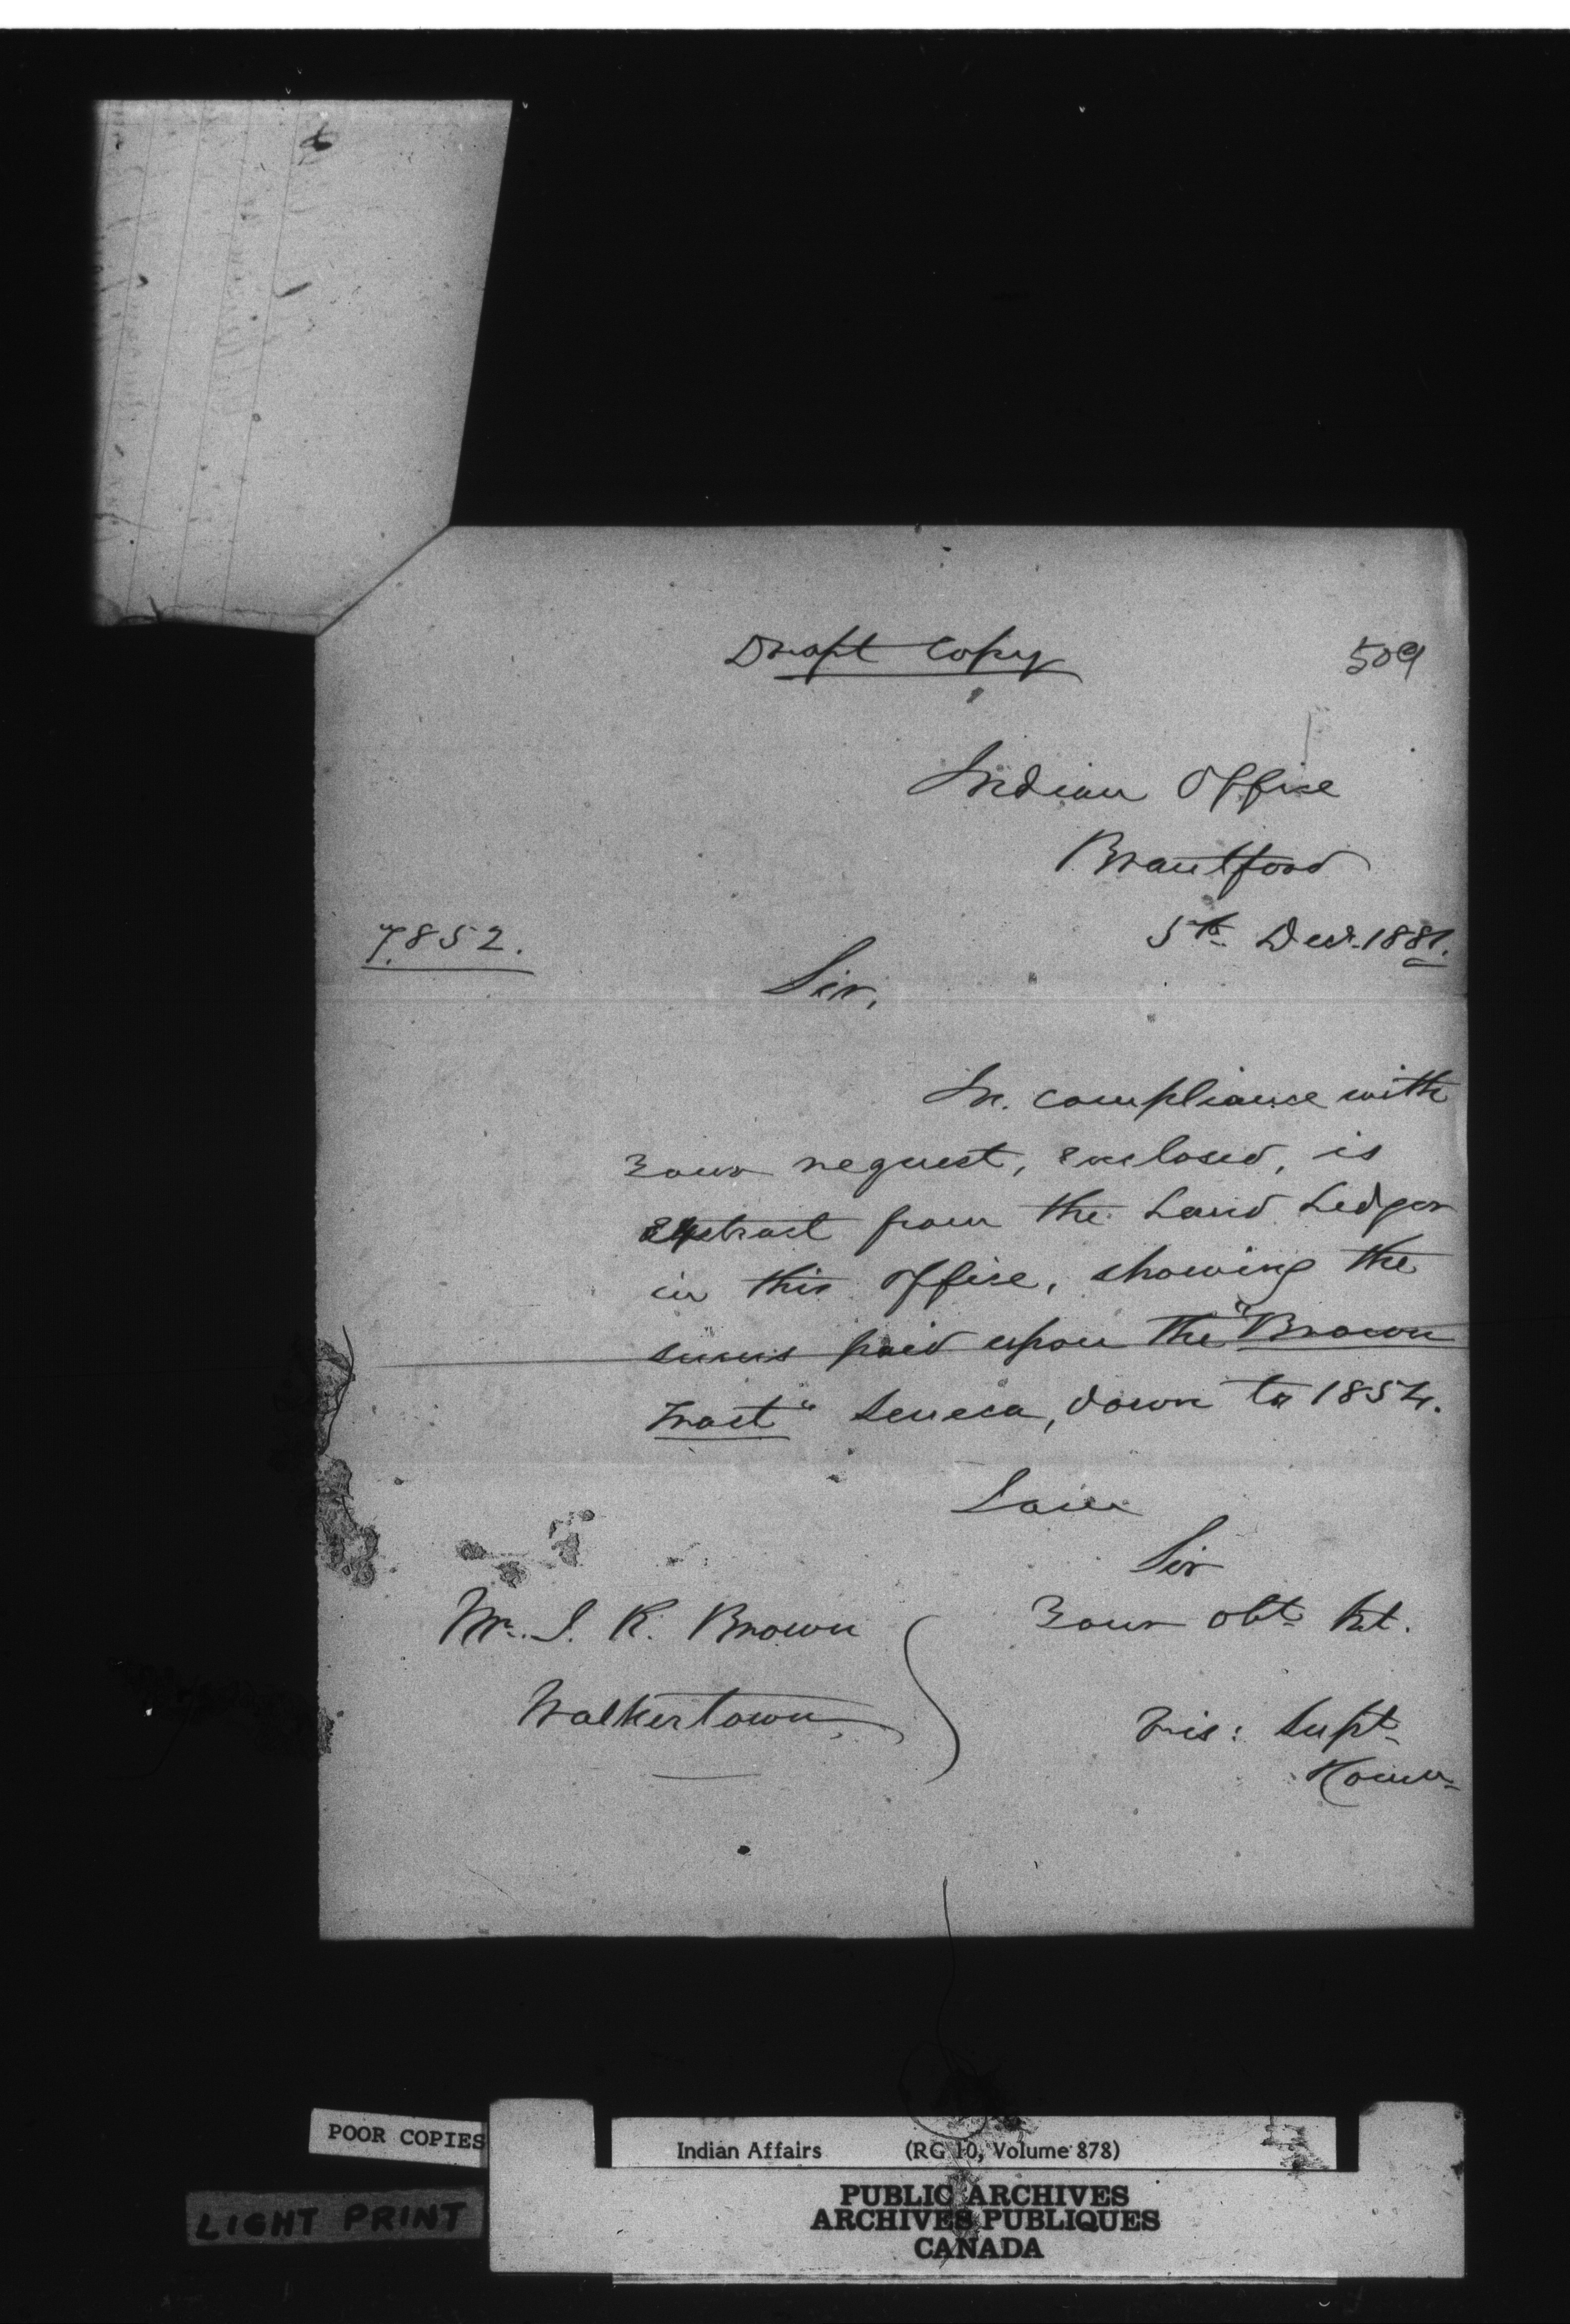 Draft Copy
509
Indian Office
Brantford
7852.
5th Decr. 1881.
Sir,
In compliance with
your request, enclosed, is
extract from the Land Ledger
in this office, showing the
sums paid upon the "Brown
Tract" Seneca, down to 1854.
I am
Sir
Your obt. Svt.
Mr. J. R. Brown
Walkertown
Vis: Supt.
Comr.
POOR COPIES
LIGHT PRINT
Indian Affairs (RG 10, Volume 878)
PUBLIC ARCHIVES
ARCHIVES PUBLIQUES
CANADA